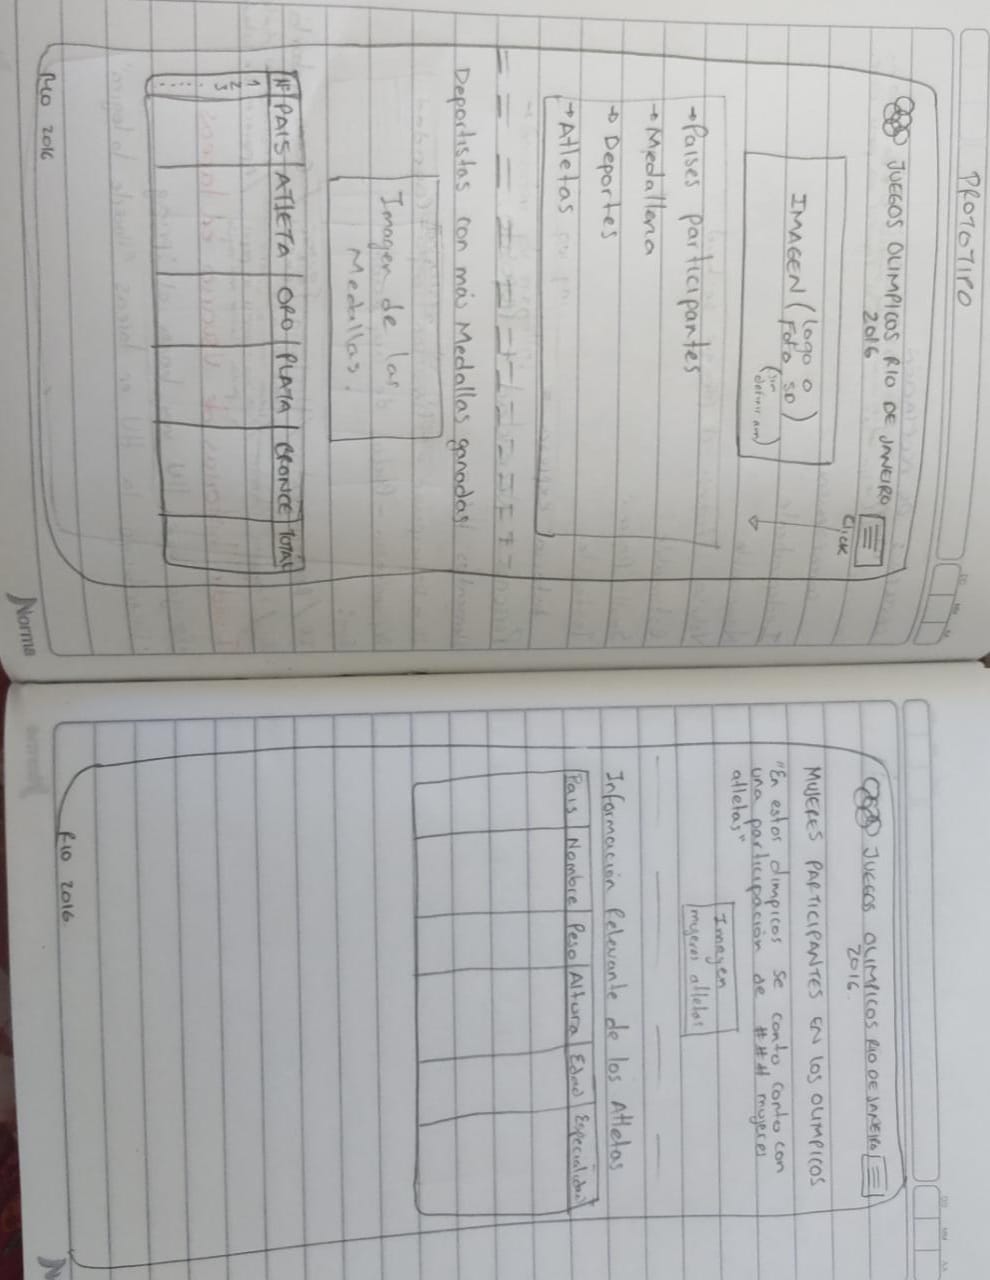 PROTOTIPO
JUEGOS OLIMPICOS RIO DE JANEIRO
2016
Click
IMAGEN (Logo o
Foto SD)
(sin
definir aun)
→Paises participantes
→Medalleria
→Deportes
→Atletas
Deportistas con más Medallas ganadas
Imagen de las
Medallas.
Nº PAIS ATLETA ORO PLATA BRONCE TOTAL
1
2
3
RIO 2016
Norma
JUEGOS OLIMPICOS RIO DE JANEIRO
2016.
MUJERES PARTICIPANTES EN LOS OLIMPICOS
"En estos olimpicos se conto conto con
una participación de ### mujeres
atletas"
Imagen
mujeres atletas
Información Relevante de los Atletas
Pais Nombre Peso Altura Edad Especialidad
RIO 2016